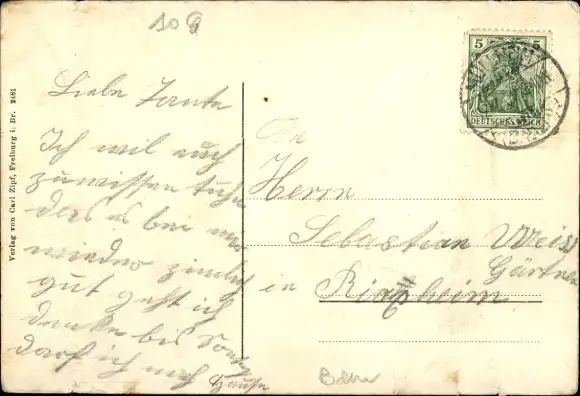 Liebe Tante
Ich wil euch
zuwissen tuhn
das es bei uns
wieder zimlich
gut geht ich
denke bis
darf ich nach
Hause
Verlag von Carl Zipf, Freiburg i. Br. 2481
5 5
DEUTSCHES REICH
An
Herrn
Sebastian Weiss
Gärtner
in Ringsheim
Baden